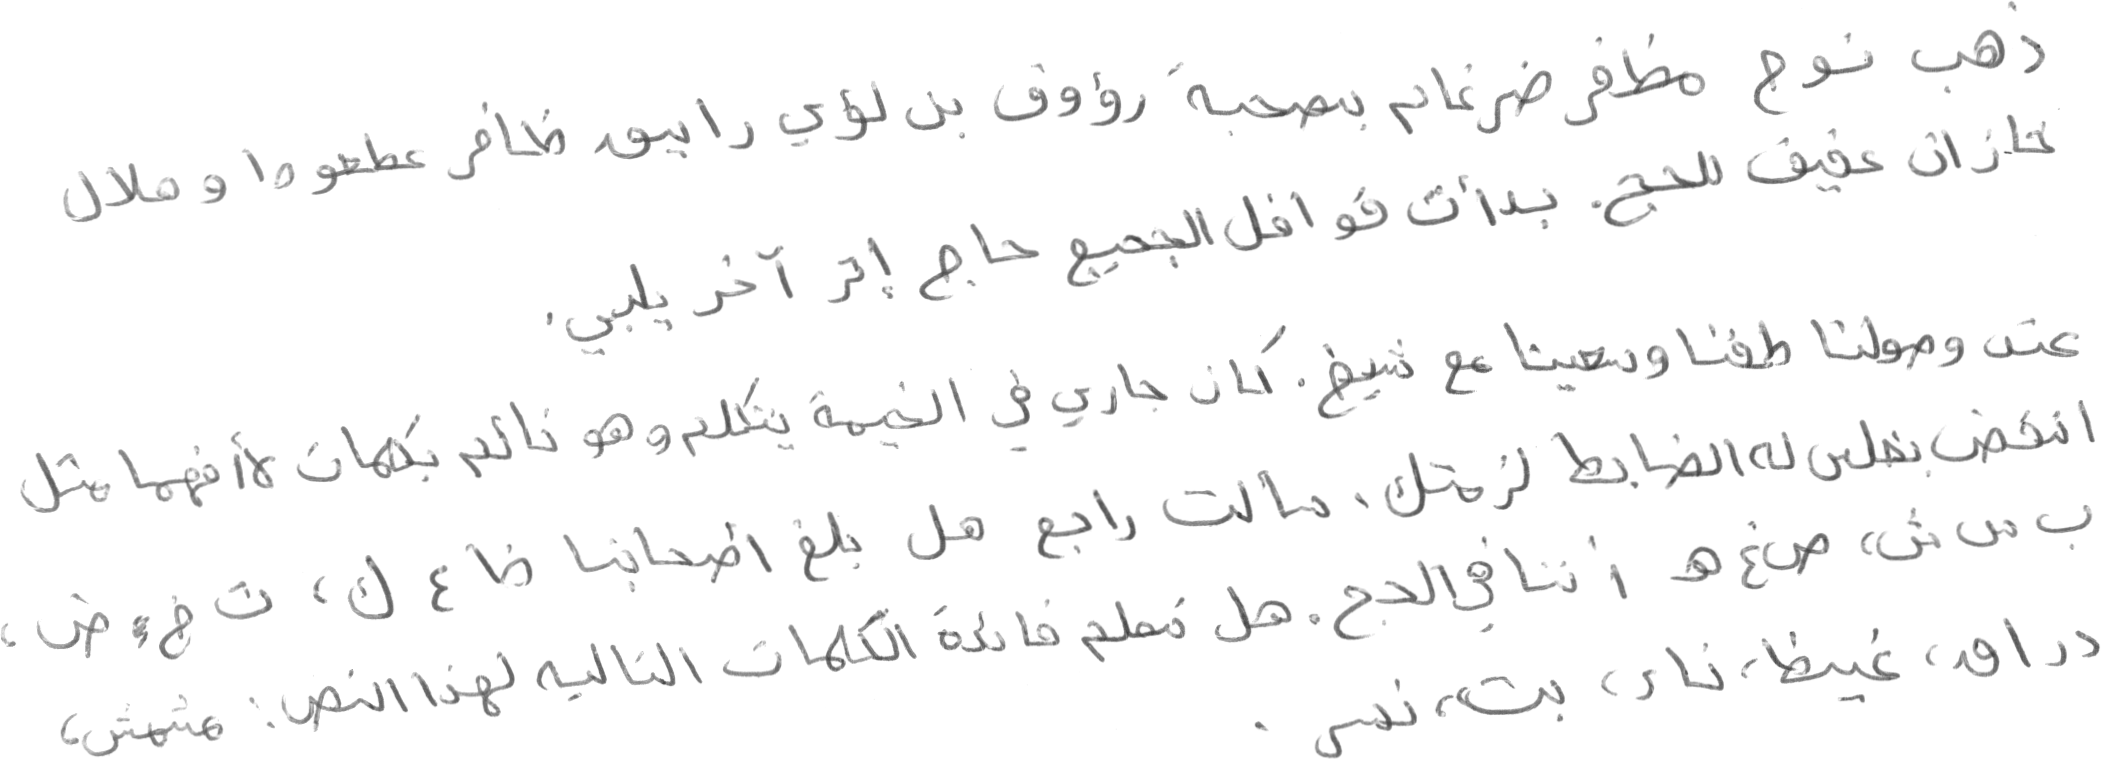 ذهب نوح مظفر ضرغام بصحبة رؤوف بن لؤي رايق ظافر عطعوط وهلال
خازن عفيف للحج. بدأت قوافل الجميع حاج إثر آخر يلبي.
عند وصولنا طفنا وسعينا مع شيخ. كان جاري في الخيمة يتكلم وهو نائم بكلمات لا أفهمها مثل
انقض بغلس له الضابط لزمتك. سالت رابع هل بلغ اضحانبا ظ ع ك، ت خ ء ض،
ب س ش، ص غ هـ أننا في الحج. هل تعلم فائدة الكلمات التاليه لهذا النص: مشمش،
دراق، غيظ، نار، بت، نمس.